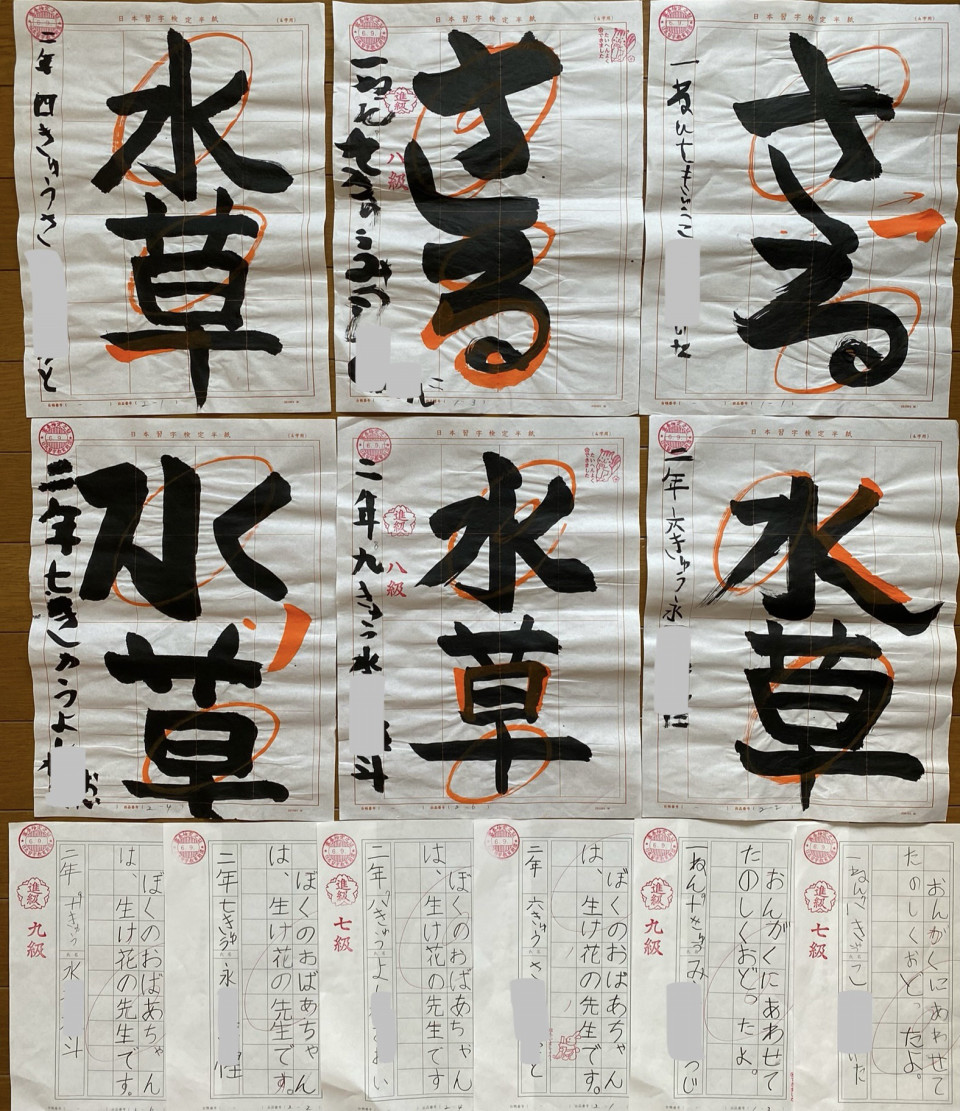 日本習字検定半紙
水草
二年 四きゅう さ
と
日本習字検定半紙
たいへんよく
できました
さる
進級
八級
日本習字検定半紙
さる
日本習字検定半紙
水草
二年 七きゅう よ
日本習字検定半紙
たいへんよく
できました
水草
進級
八級
二年 九きゅう 水
斗
日本習字検定半紙
水草
二年 六きゅう 永
ぼくのおばあちゃん
は、生け花の先生です。
二年 十きゅう 水
斗
進級
九級
ぼくのおばあちゃん
は、生け花の先生です。
二年 七きゅう 永
ぼくのおばあちゃん
は、生け花の先生です。
二年 八きゅう よ
い
進級
七級
ぼくのおばあちゃん
は、生け花の先生です。
二年 六きゅう さ
と
おんがくにあわせて
たのしくおどったよ。
一ねん 十きゅう み
つじ
進級
九級
おんがくにあわせて
たのしくおどったよ。
一ねん 八きゅう こ
いた
進級
七級